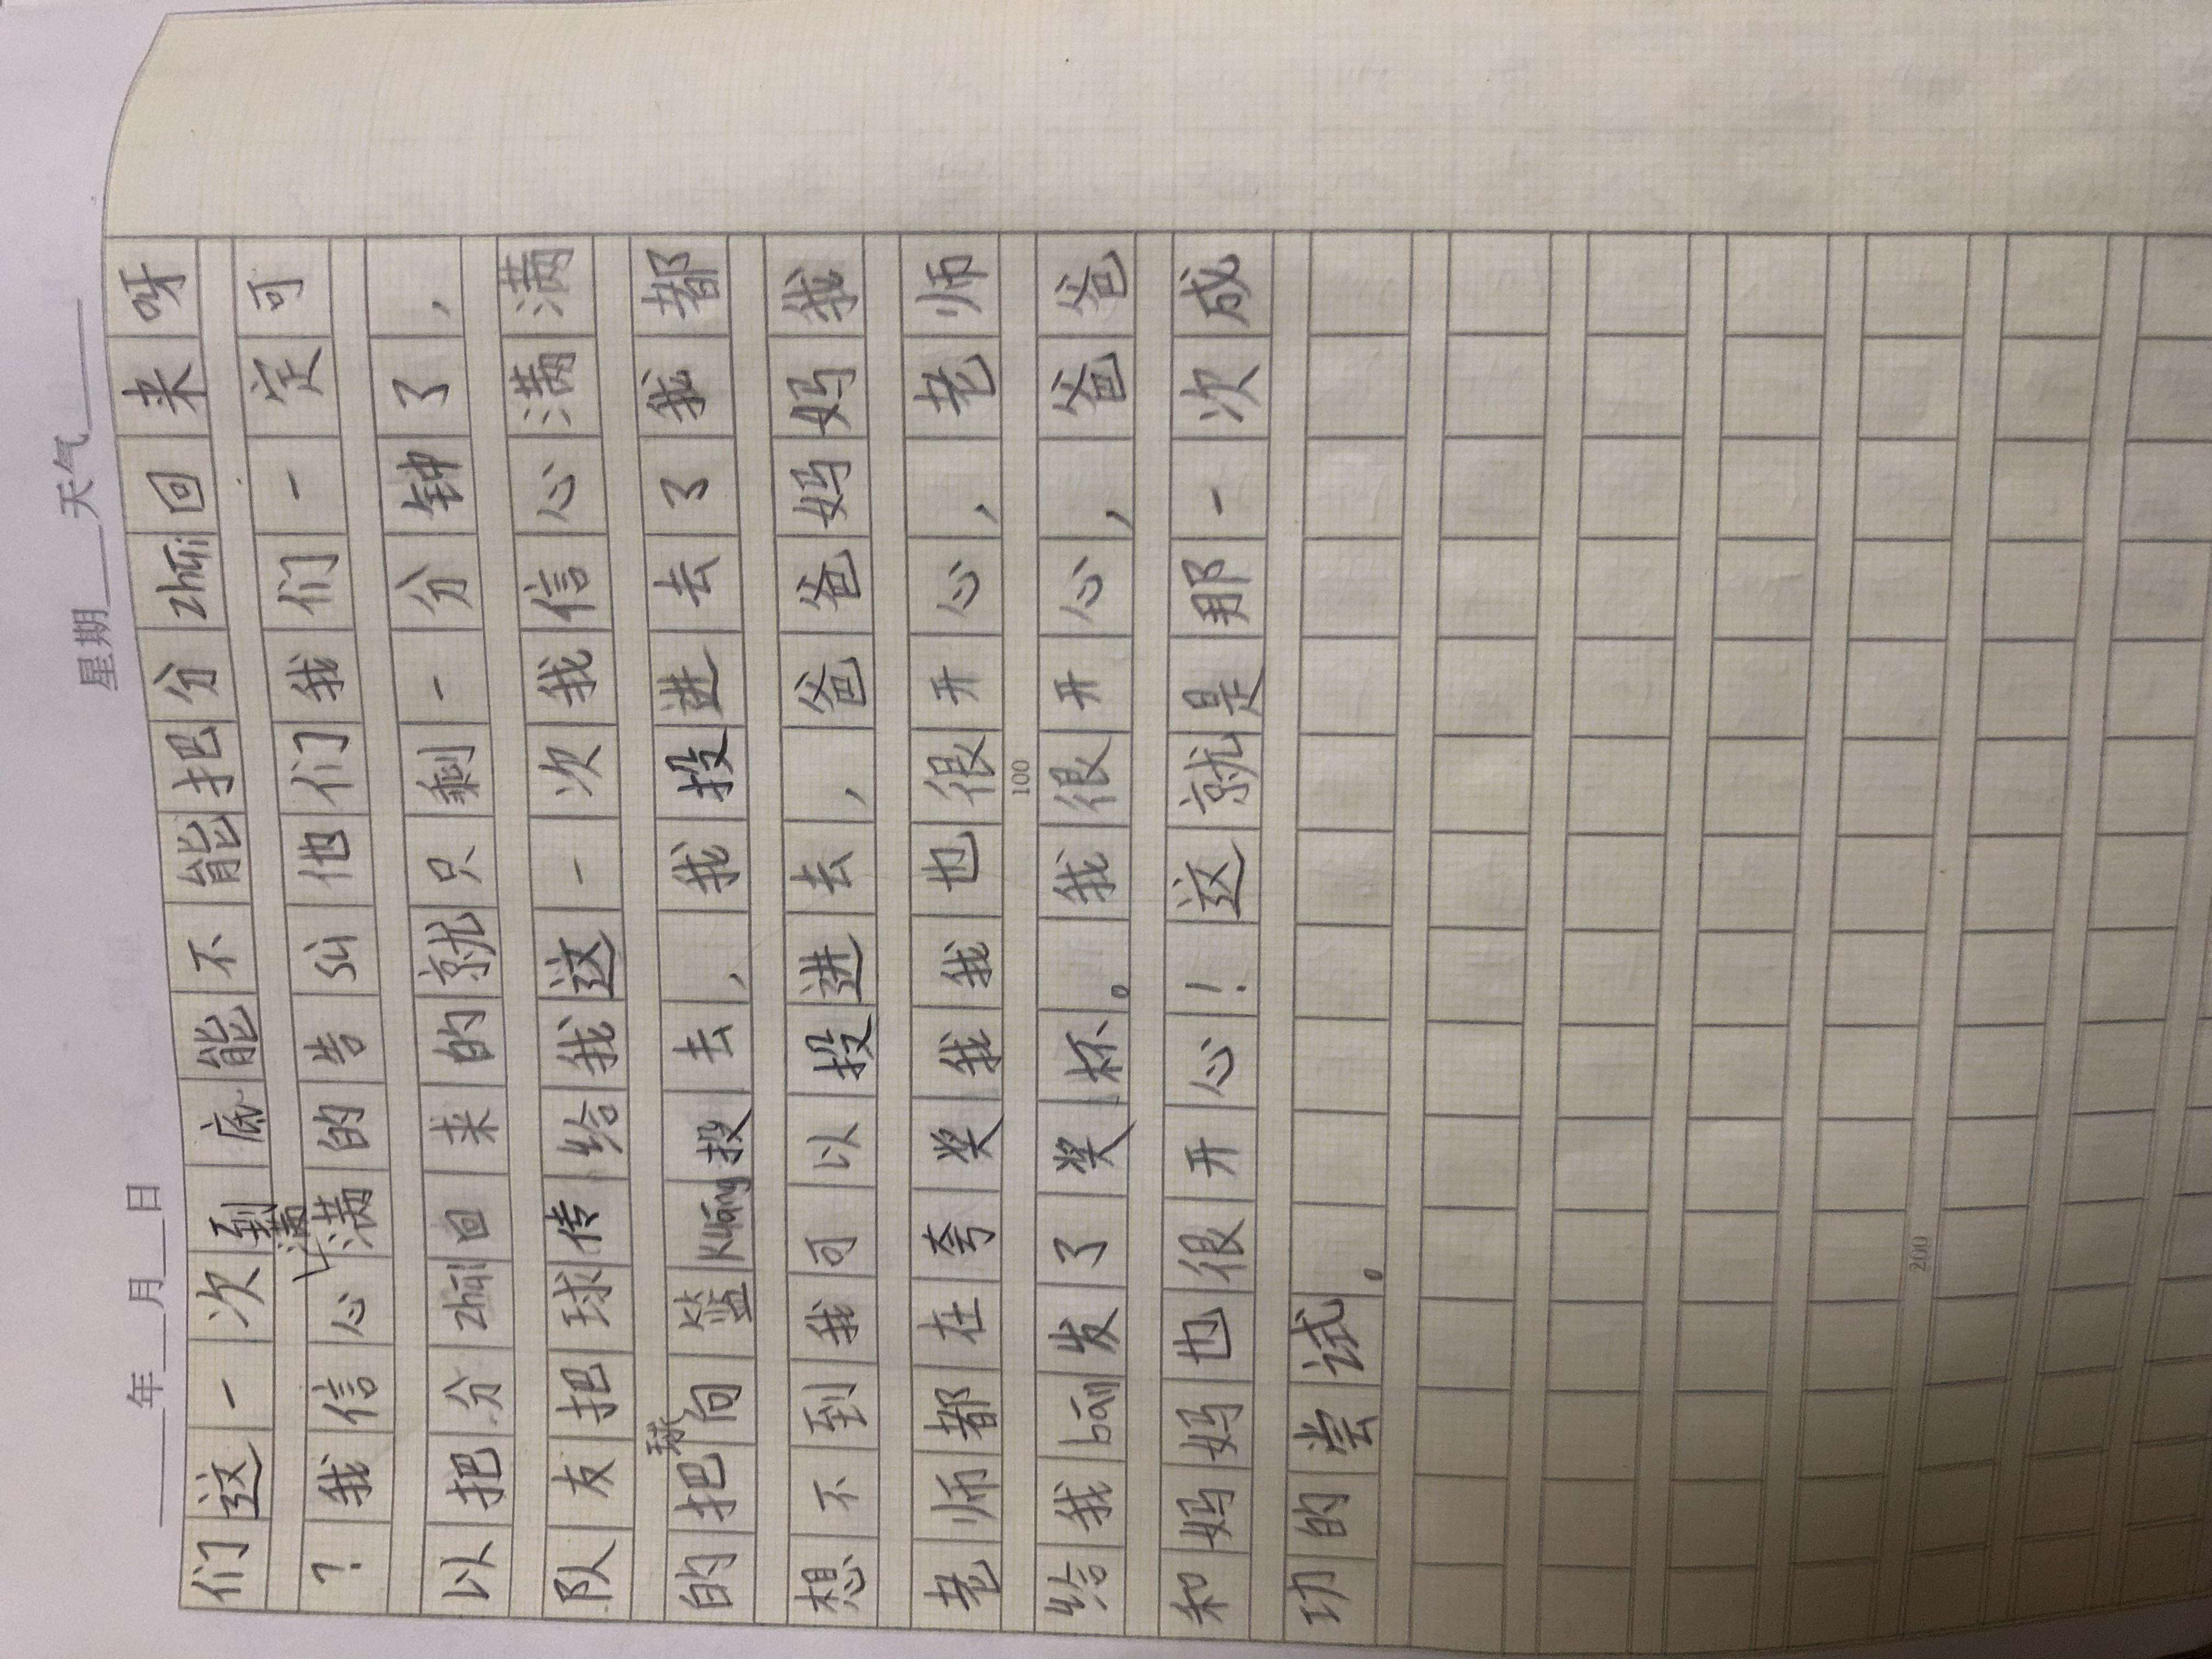 ____年__月__日 星期___天气____
们这一次到底能不能把分zhuī回来呀
?我信心满满的告sù他们我们一定可
以把分zhuī回来的就只剩一分钟了,
队友把球传给我这一次我信心满满
的把球向篮kuāng投去,我投进去了我都
想不到我可以投进去,爸爸妈妈我
老师都在夸奖我我也很开心,老师
100
给我bān发了奖杯。我很开心,爸爸
和妈妈也很开心!这就是那一次成
功的尝试。
200